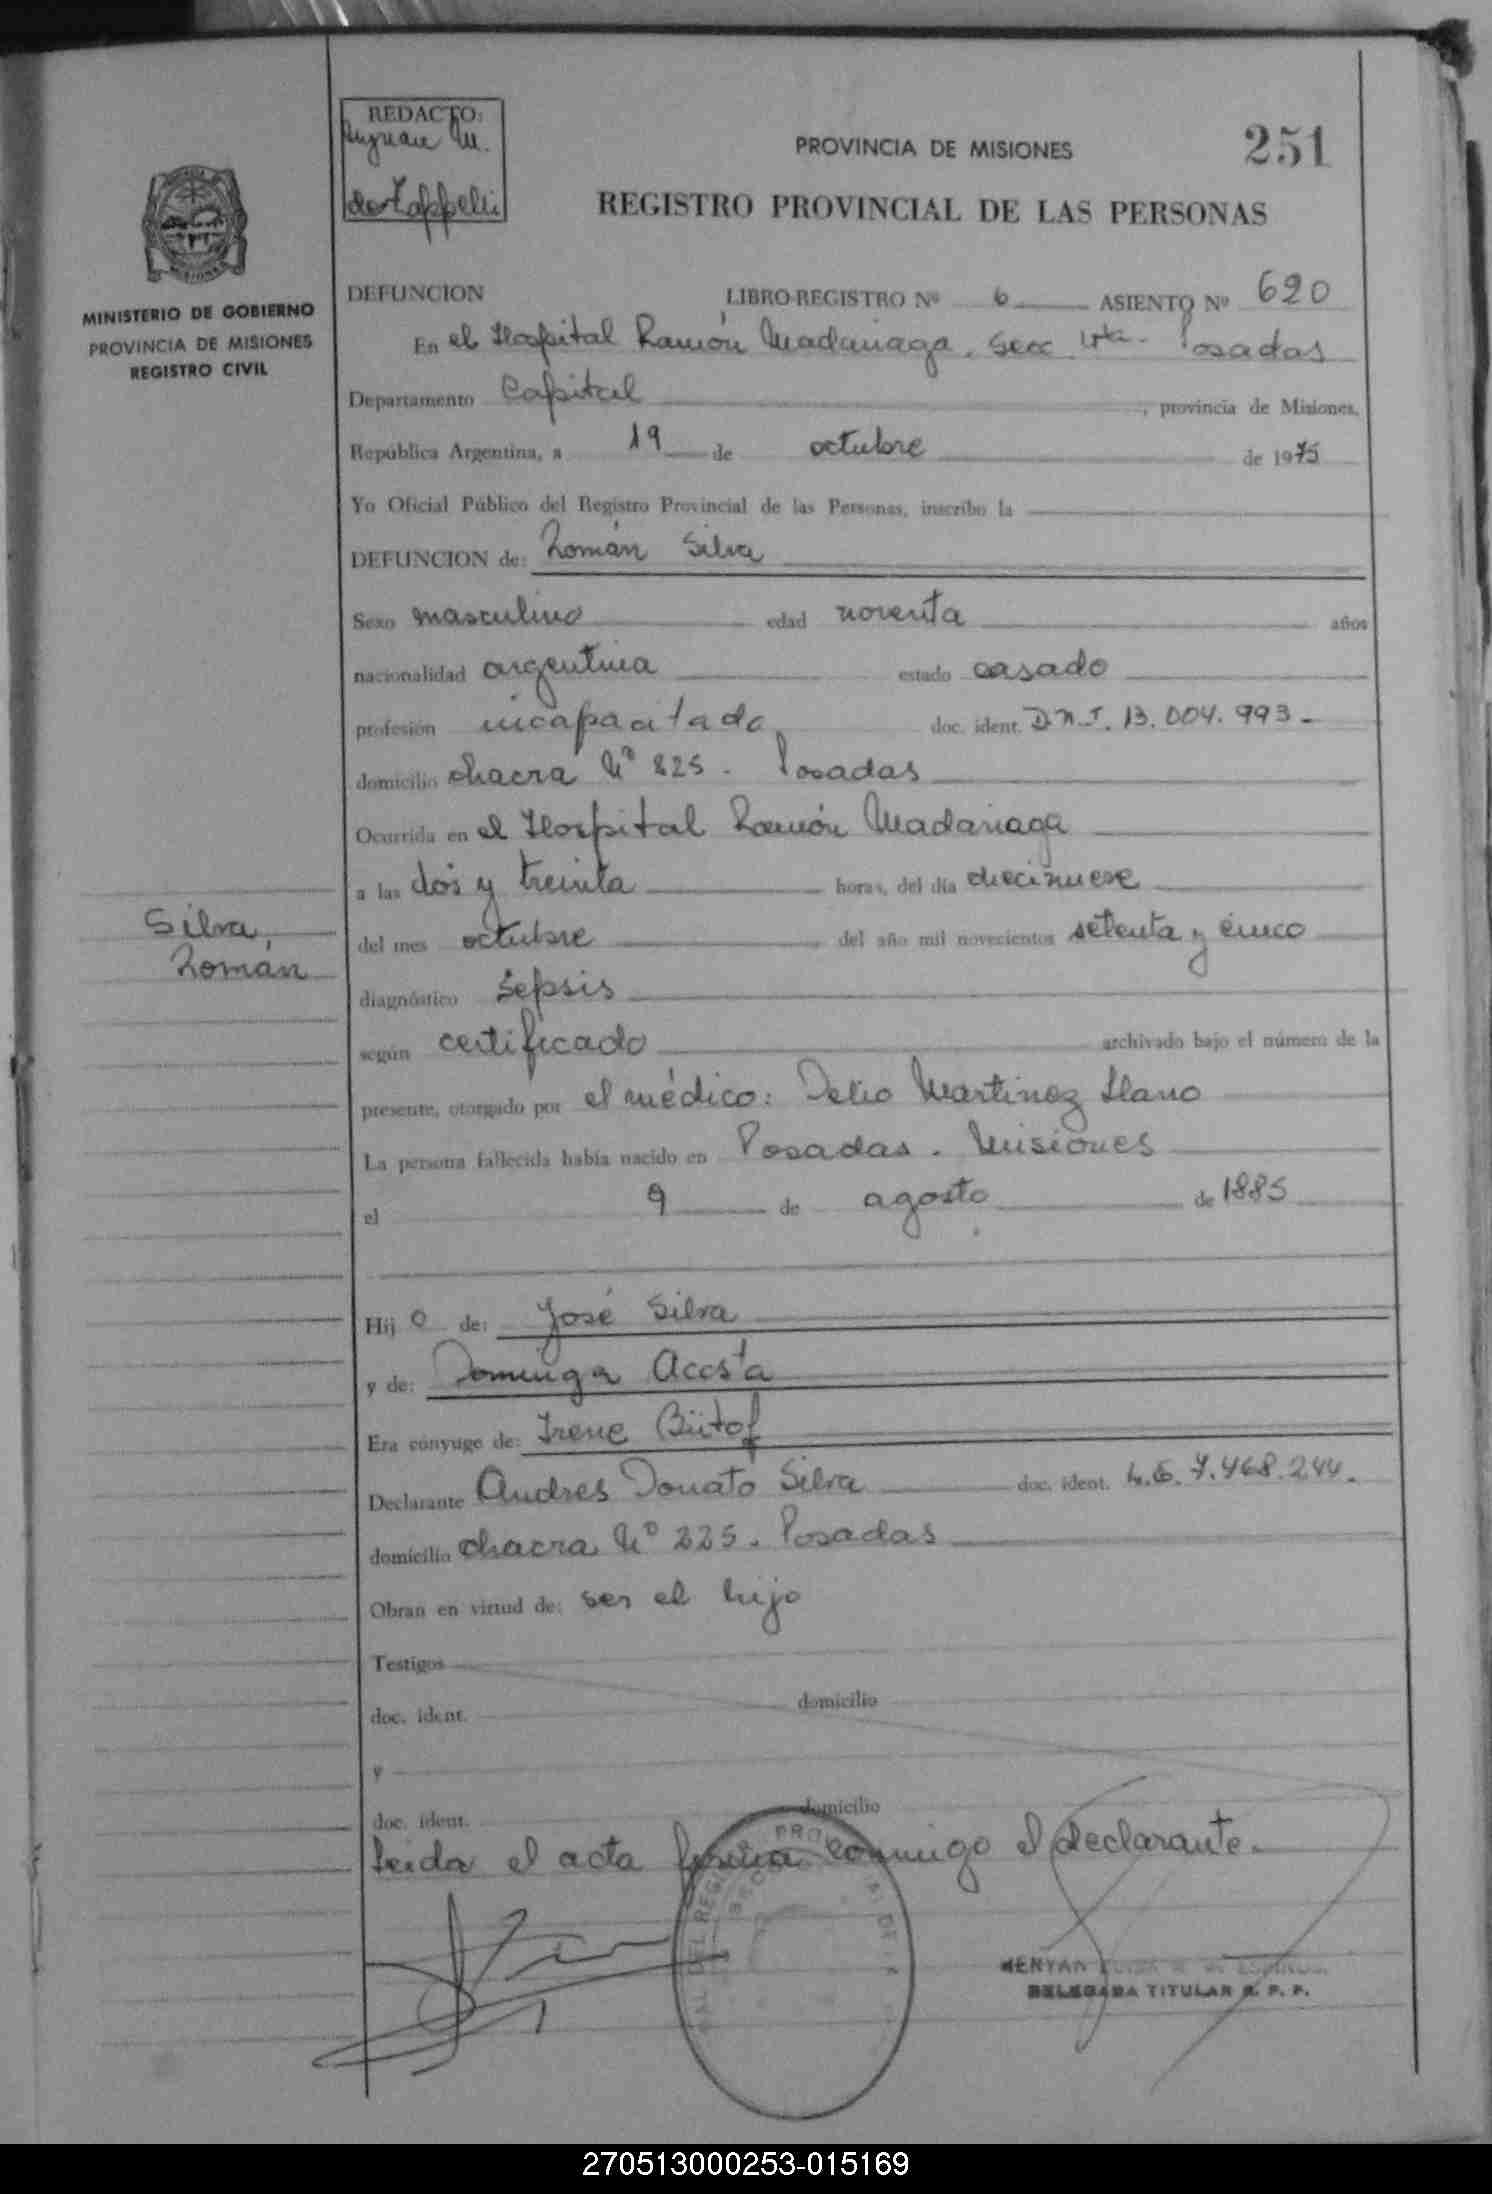 REDACTO:
PROVINCIA DE MISIONES
251
REGISTRO PROVINCIAL DE LAS PERSONAS
MISIONES
MINISTERIO DE GOBIERNO
PROVINCIA DE MISIONES
REGISTRO CIVIL
DEFUNCION LIBRO-REGISTRO Nº 6 ASIENTO Nº 620
En el Hospital Ramón Madariaga. Secc. Posadas
Departamento Capital, provincia de Misiones,
República Argentina, a 19 de octubre de 1975
Yo Oficial Público del Registro Provincial de las Personas, inscribo la
DEFUNCION de: Román Silva
Sexo masculino edad noventa años
nacionalidad argentina estado casado
profesión incapacitado doc. ident. D.N.I. 13.004.993.-
domicilio chacra Nº 225. Posadas
Ocurrida en el Hospital Ramón Madariaga
a las dos y treinta horas, del día diecinueve
Silva,
Román
del mes octubre del año mil novecientos setenta y cinco
diagnóstico Sepsis
según certificado archivado bajo el número de la
presente, otorgado por el médico: Delio Martinez Llano
La persona fallecida había nacido en Posadas. Misiones
el 9 de agosto de 1885
Hij o de: José Silva
y de: Dominga Acosta
Era cónyuge de: Irene Bütof
Declarante Andres Donato Silva doc. ident. L.E. 7.468.244.
domicilio chacra Nº 225. Posadas
Obran en virtud de: ser el hijo
Testigos
doc. ident. domicilio
y
doc. ident. domicilio
Leida el acta firma conmigo el declarante.
DELEGADA TITULAR R. P. P.
270513000253-015169